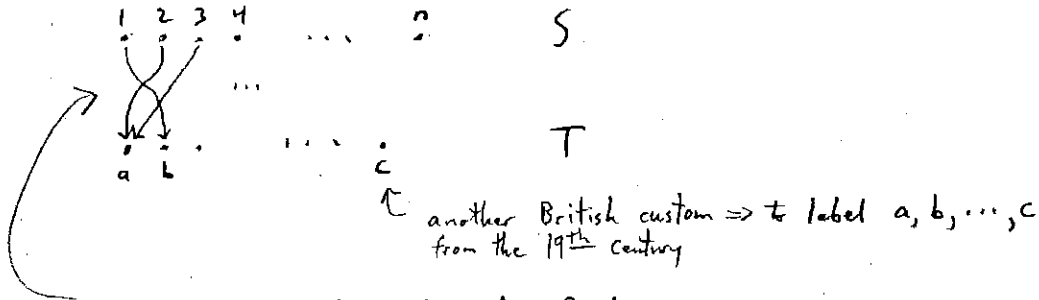 1 2 3 4 ... n S
...
a b ... c T
another British custom ⇒ to label a, b, ..., c
from the 19th century